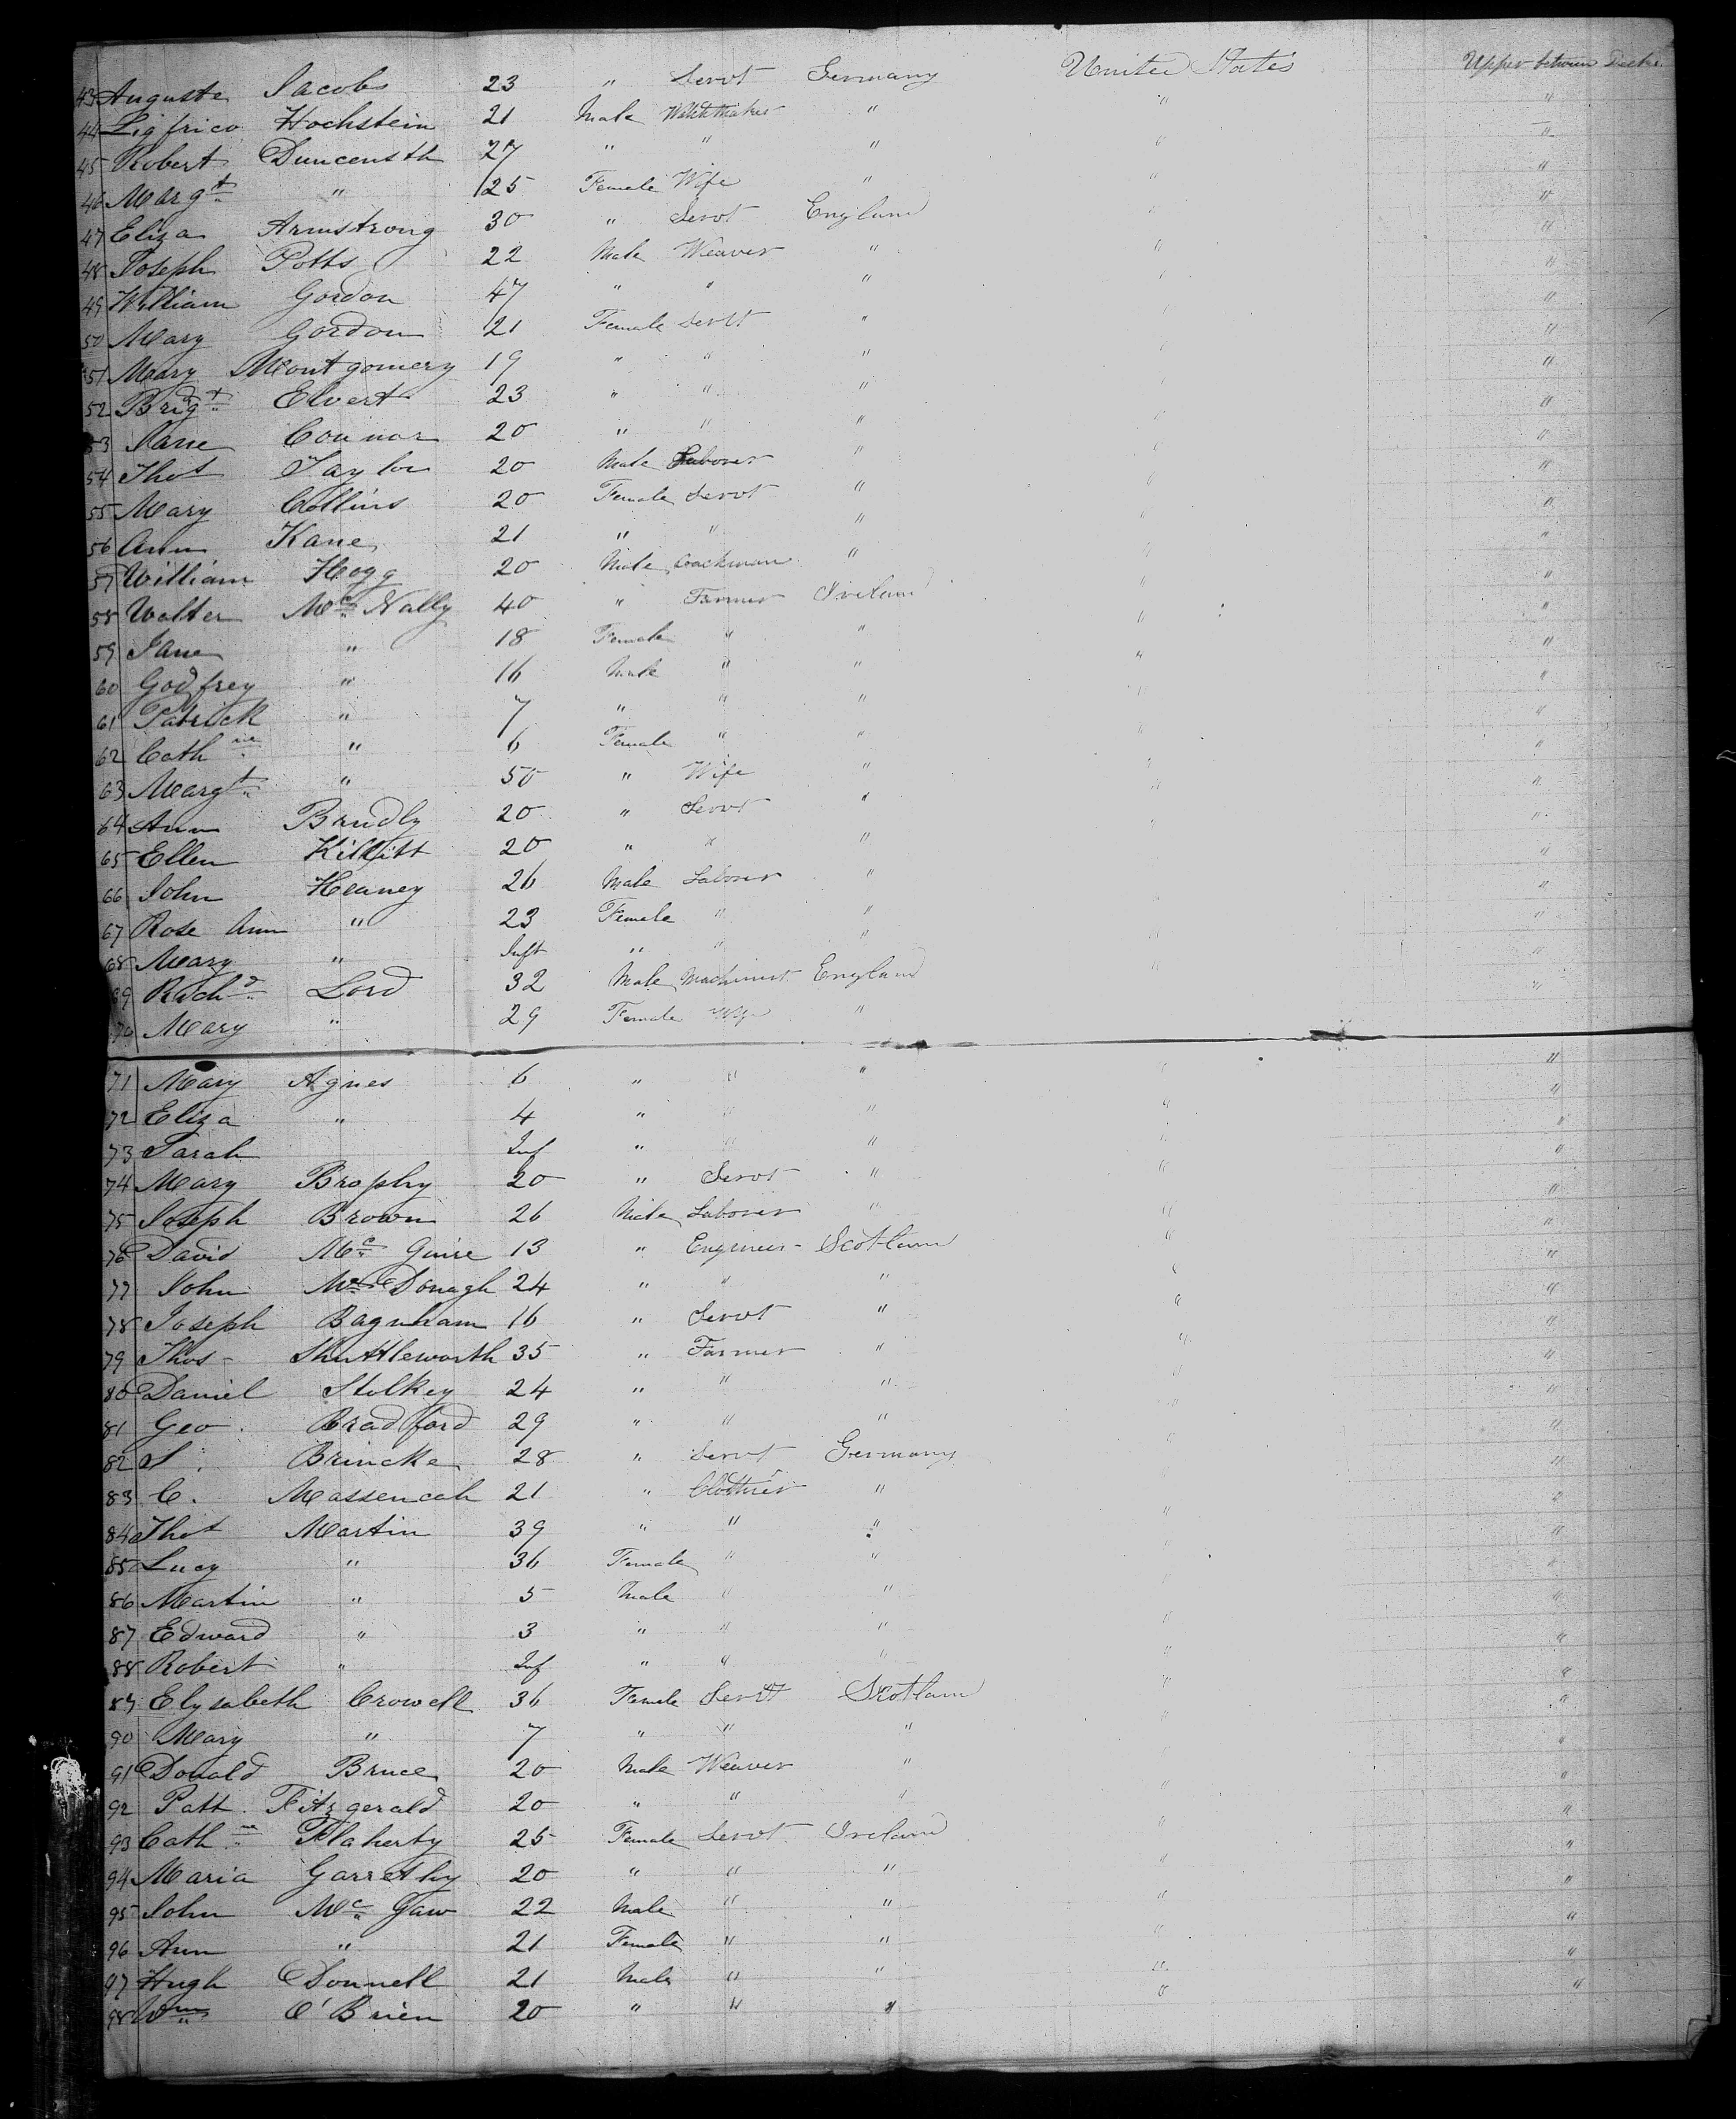 43 Auguste Jacobs 23 " Servt Germany United States Upper between Decks
44 Sigfrico Hochstein 21 Male Watchmaker " " "
45 Robert Duncensth 27 " " " " "
46 Margt " 25 Female Wife " " "
47 Eliza Armstrong 30 " Servt England " "
48 Joseph Potts 22 Male Weaver " " "
49 William Gordon 47 " " " " "
50 Mary Gordon 21 Female Servt " " "
51 Mary Montgomery 19 " " " " "
52 Brigdt Elvert 23 " " " " "
53 Jane Connor 20 " " " " "
54 Thos Taylor 20 Male Laborer " " "
55 Mary Collins 20 Female Servt " " "
56 Ann Kane 21 " " " " "
57 William Hogg 20 Male Coachman " " "
58 Walter Mc Nally 40 " Farmer Ireland " "
59 Jane " 18 Female " " " "
60 Godfrey " 16 Male " " " "
61 Patrick " 7 " " " " "
62 Cathne " 6 Female " " " "
63 Margt " 50 " Wife " " "
64 Ann Brudly 20 " Servt " " "
65 Ellen Killitt 20 " " " " "
66 John Heaney 26 Male Laborer " " "
67 Rose Ann " 23 Female " " " "
68 Mary " Inft " " " " "
69 Richd Lord 32 Male Machinist England " "
70 Mary " 29 Female Wife " " "
71 Mary Agnes 6 " " " " "
72 Eliza " 4 " " " " "
73 Sarah Inf " " " " "
74 Mary Brophy 20 " Servt " " "
75 Joseph Brown 26 Male Laborer " " "
76 David Mc Guire 13 " Engineer Scotland " "
77 John Mc Donagh 24 " " " " "
78 Joseph Bagnham 16 " Servt " " "
79 Thos Shuttleworth 35 " Farmer " " "
80 Daniel Stolkey 24 " " " " "
81 Geo. Bradford 29 " " " " "
82 S. Brincke 28 " Servt Germany " "
83 C. Massencah 21 " Clothier " " "
84 Thos Martin 39 " " " " "
85 Lucy " 36 Female " " " "
86 Martin " 5 Male " " " "
87 Edward " 3 " " " " "
88 Robert " Inf " " " " "
89 Elysabeth Crowell 36 Female Servt Scotland " "
90 Mary " 7 " " " " "
91 Donald Bruce 20 Male Weaver " " "
92 Patt. Fitzgerald 20 " " " " "
93 Cathne Flaherty 25 Female Servt Ireland " "
94 Maria Garrethy 20 " " " " "
95 John Mc Gaw 22 Male " " " "
96 Ann " 21 Female " " " "
97 Hugh Donnell 21 Male " " " "
98 Wm O'Brien 20 " " " " "